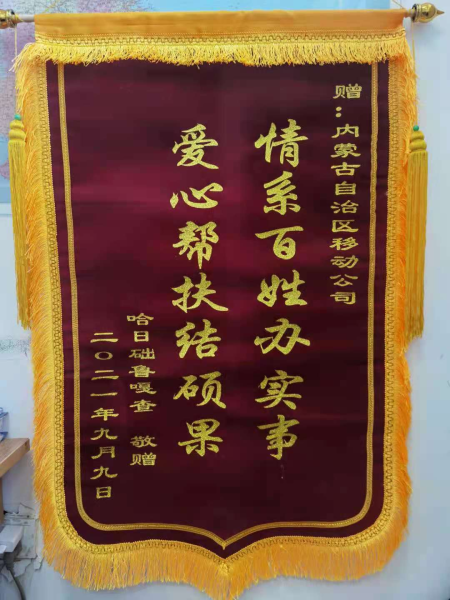 赠：内蒙古自治区移动公司
情系百姓办实事
爱心帮扶结硕果
哈日础鲁嘎查 敬赠
二〇二一年九月九日